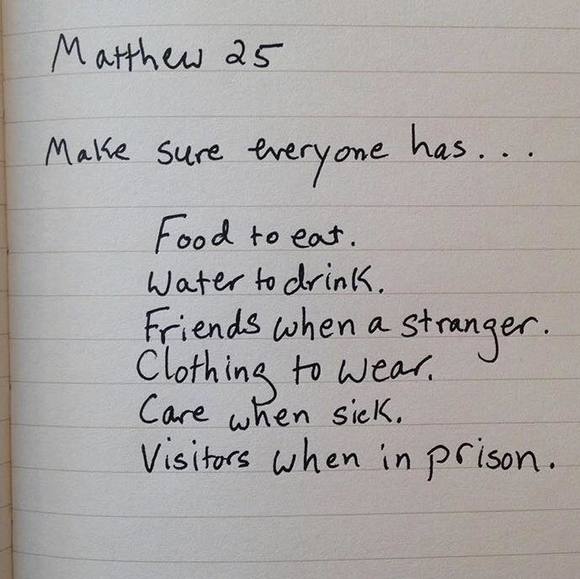 Matthew 25
Make sure everyone has...
Food to eat.
Water to drink.
Friends when a stranger.
Clothing to wear.
Care when sick.
Visitors when in prison.